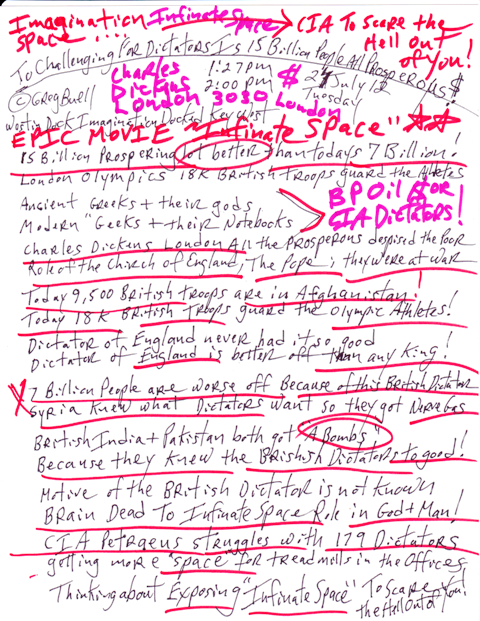 Imagination Infinate Space → CIA To Scare the
Space .... Hell Out
of You!
To Challenging For Dictators Is 15 Billion People All Prosperous!
Charles 1:27pm $ 24 July 12
Dickens 2:00pm Tuesday
London 3030 London
© Greg Buell
Westin Dock Imagination Docked Key West
EPIC MOVIE "Infinate Space"
15 Billion Prospering lot better than todays 7 Billion!
London Olympics 18K British Troops guard the Athletes
Ancient Greeks + their gods
Modern "Geeks + their Notebooks
BP Oil $ for
CIA Dictators!
Charles Dickens London All the Prosperous despised the Poor
Role of the Church of England, The Pope, they were at war
Today 9,500 British Troops are in Afghanistan!
Today 18K British Troops guard the Olympic Athletes!
Dictator of England never had it so good
Dictator of England is better off than any King!
7 Billion People are worse off Because of this British Dictator
Syria knew what Dictators want so they got Nerve Gas
British India + Pakistan both got "A Bombs"
Because they knew the Brishish Dictators to good!
Motive of the British Dictator is not known
Brain Dead To Infinate Space Role in God + Man!
CIA Petraeus struggles with 179 Dictators
getting more "space" for treadmills in the Offices
Thinking about Exposing "Infinate Space" To Scare You!
the Hell Out of